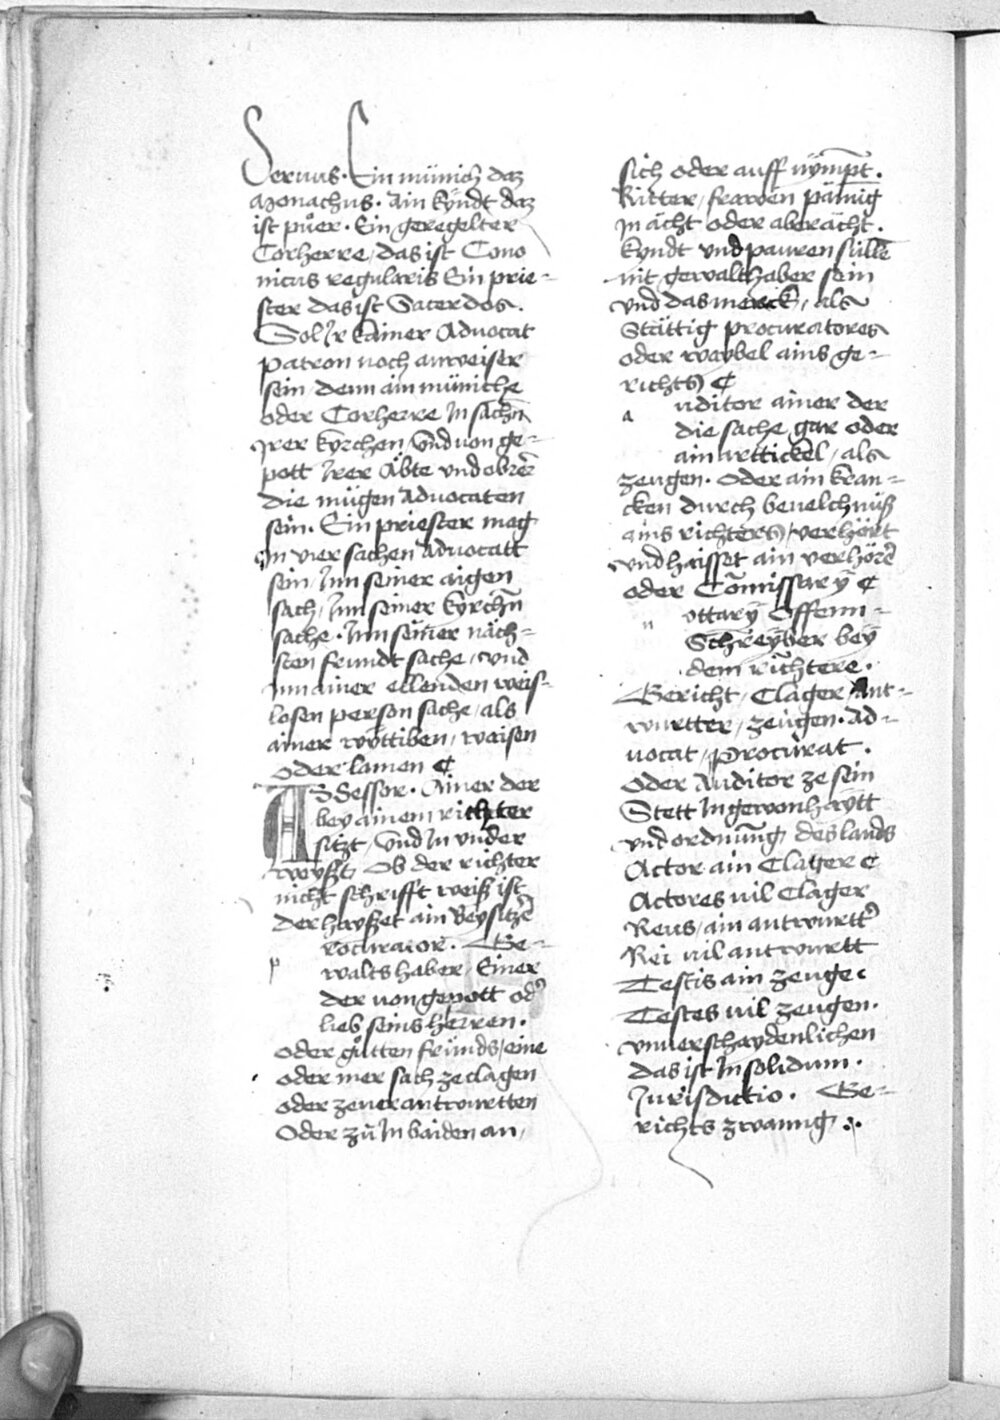 Seruus. Ein münich daz
Monachus. Ain kÿndt daz
ist půer. Ein geregelter
Corherre, das ist Cono
nicus regularis Ein prie-
ster das ist Sacerdos.
Sol Jr kainer Aduocat
patron noch anweiser
sein, denn ain müniche
oder Corherre In sachñ
Jrer kyrchen, Vnd von ge-
pott Jrer Äbte vnd obrer
die mügen Aduocaten
sein. Ein priester mag
Jn vier sachen Aduocatt
sein, Jnn seiner aigen
sach, Jnn seiner kyrchñ
sache. Jnn seiner näch-
sten frundt sache, vnd
Jnn ainer ellenden weis-
losen person sache, als
ainer wyttiben, waisen
oder lamen ¢
ASsessor. Ainer der
bey ainem richter
sitzt, Vnd In vnder
weyßt, Ob der richter
nicht schrifft weiß ist
der hayßet ain Beysitzer
p rocurator. Ge-
walts haber, Einer
der von gepott od'
lieb seins herren.
oder gůtten fründs, eine
oder mer sach ze clagen
oder ze uerantwurtten
Oder zů In baiden an,
sich oder auff nÿmpt.
Ritter, frawen pämig
Jn ächt oder aberächt.
kyndt vnd pauren sülle
nit gewalthaber sein
vnd das merck, als
Stättig procuratores
oder waybel ains ge-
richts ¢
a uditor ainer der
die sache gar oder
ain arttickel, als
zeugen. Oder ain kran-
cken durch beuelchnüß
ains richters, verhört
vnd haisset ain verhörer
oder Com̄issarÿ ¢
n ottarÿ Offenn-
Schreyber beÿ
dem richtere.
Gericht, Clager, Ant-
wurtter, zeugen. Ad-
uocat, Procurat.
Oder Auditor ze sein
Stett In gewonhaytt
vnd ordnung des lands
Actor ain Clager ¢
Actores vil Clager
Reus, ain antwurtt'
Rei vil antwurtt
Testis ain zeuge ¢
Testes vil zeugen.
vnuerschaydenlichen
das ist In solidum.
Jurisdictio. Ge-
richts zwanng .